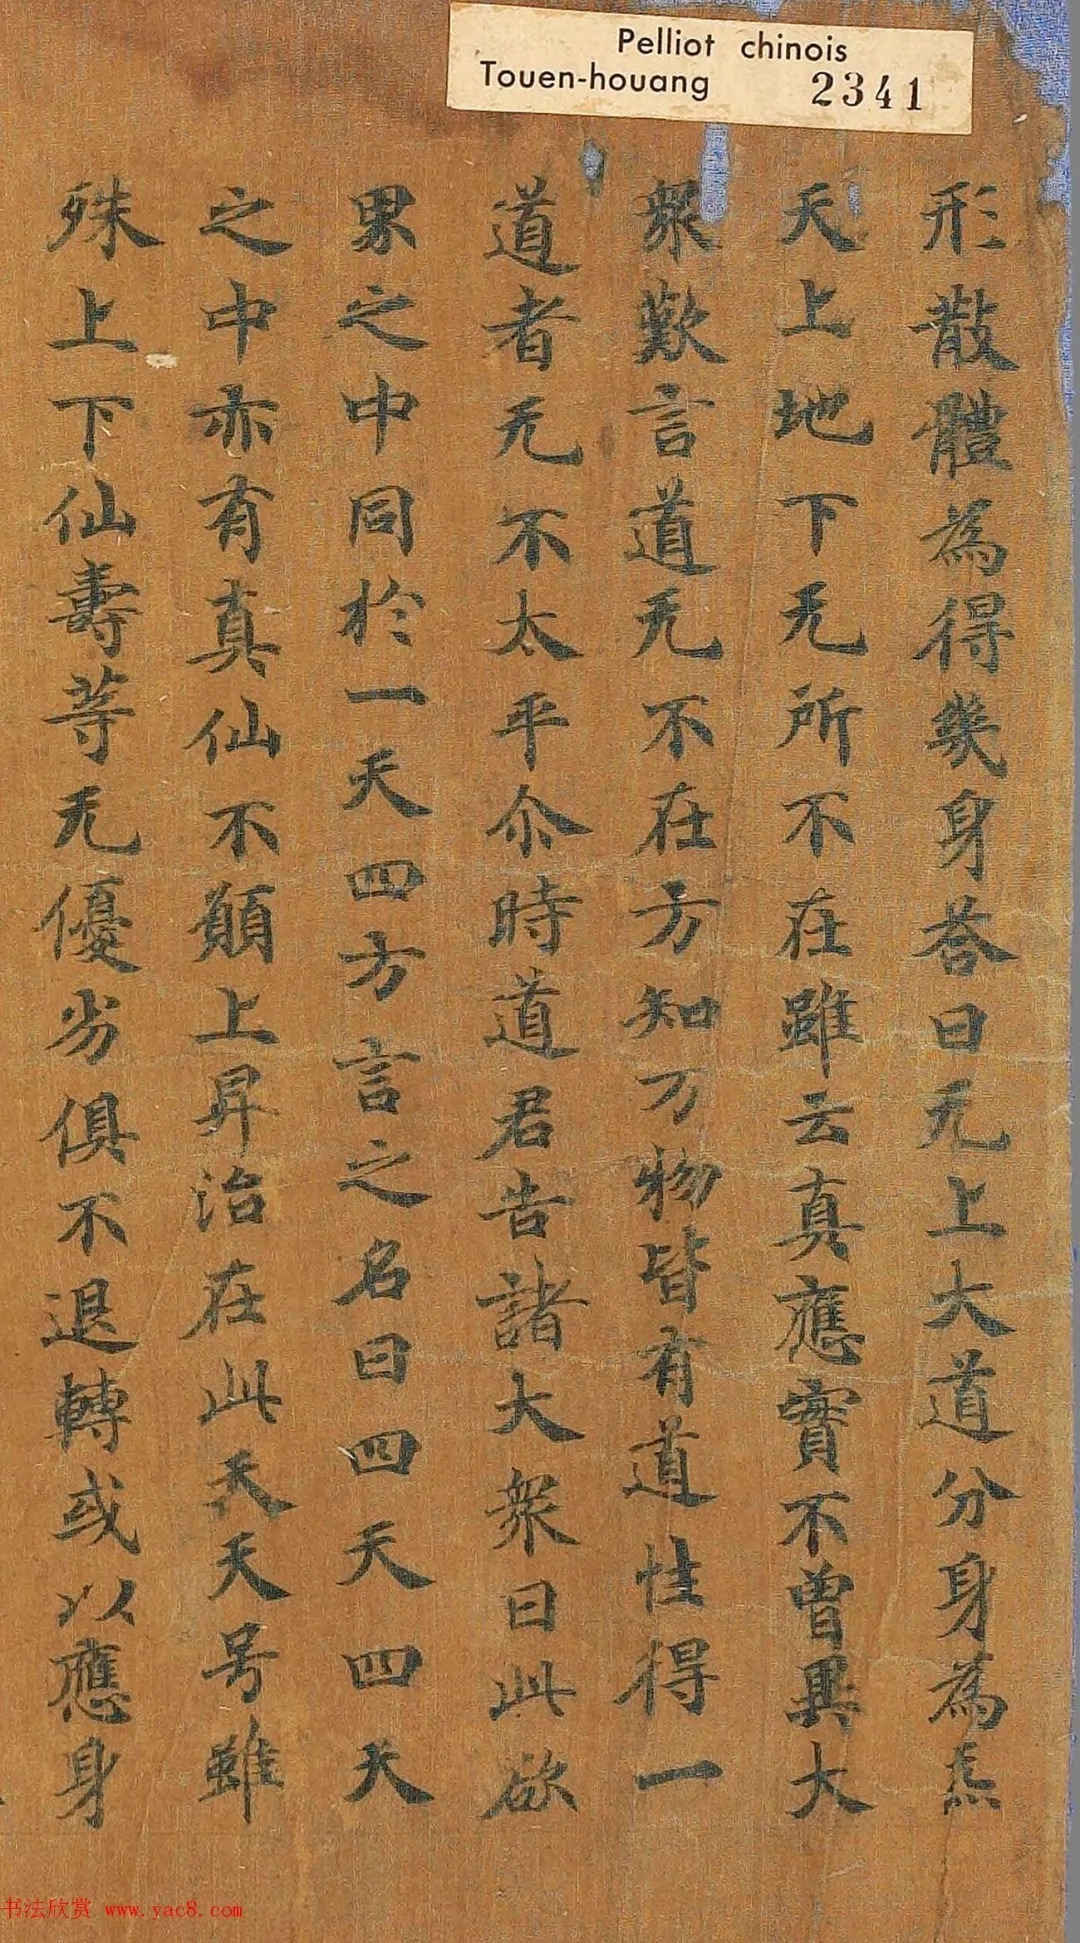 Pelliot chinois
Touen-houang 2341
形散體為得幾身荅曰无上大道分身為炁
天上地下无所不在雖云真應實不曾異大
衆歎言道无不在方知万物皆有道性得一
道者无不太平尒時道君告諸大衆曰此欲
界之中同於一天四方言之名曰四天四天
之中亦有真仙不願上昇治在此天天号雖
殊上下仙壽等无優劣俱不退轉或以應身
书法欣赏 www.yac8.com